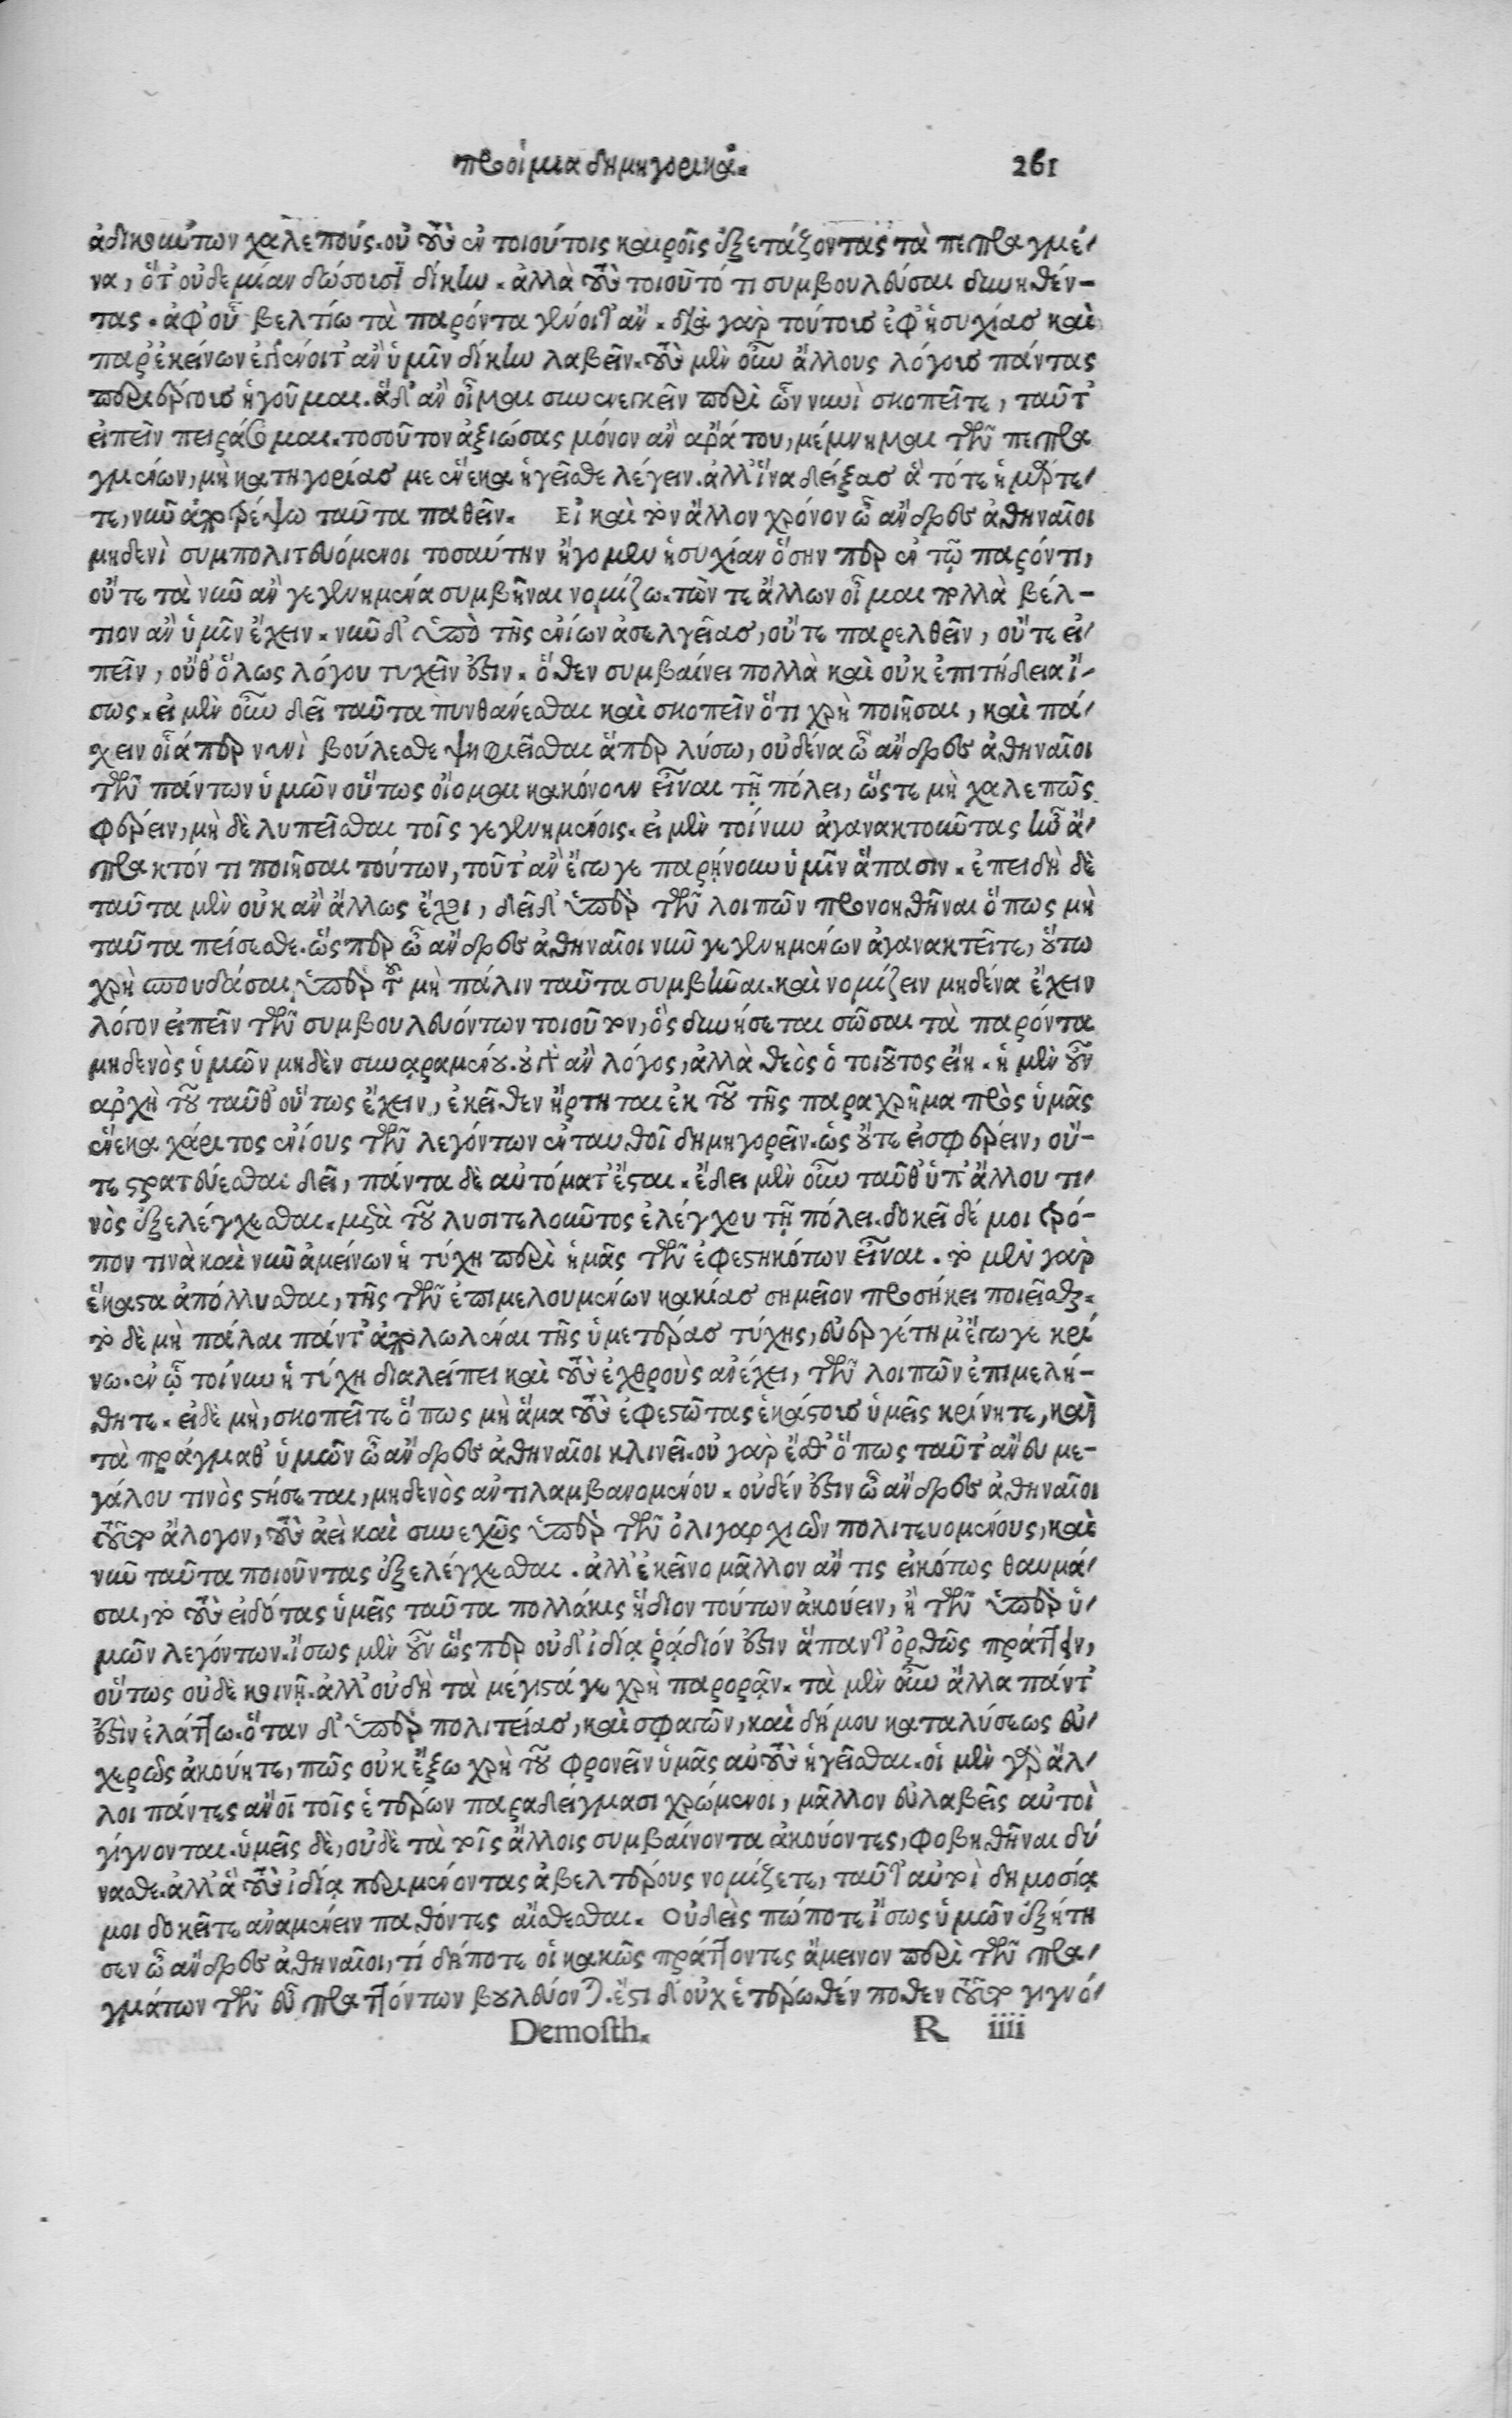 προοίμια δημηγορικά. 261
ἀδικησάντων χαλεπούς. οὐ τοὺς ἐν τοιούτοις καιροῖς ἐξετάζοντας τὰ πεπραγμέ-
να, ὅτ' οὐδεμίαν δώσουσι δίκην. ἀλλὰ τοὺς τοιοῦτό τι συμβουλεῦσαι δυνηθέν-
τας. ἀφ' οὗ βελτίω τὰ παρόντα γένοιτ' ἄν. διὰ γὰρ τούτους ἐφ' ἡσυχίας καὶ
παρ' ἐκείνων ἐγγένοιτ' ἂν ὑμῖν δίκην λαβεῖν. τοὺς μὲν οὖν ἄλλους λόγους πάντας
περιέργους ἡγοῦμαι. ἃ δ' ἂν οἶμαι συνενεγκεῖν περὶ ὧν νυνὶ σκοπεῖτε, ταῦτ'
εἰπεῖν πειράσομαι. τοσοῦτον ἀξιώσας μόνον ἂν ἄρα του, μέμνημαι τῶν πεπρα
γμένων, μὴ κατηγορίας με ἕνεκα ἡγεῖσθε λέγειν. ἀλλ' ἵνα δείξας ἃ τότε ἡμάρτε-
τε, νῦν ἀποτρέψω ταῦτα παθεῖν. Εἰ καὶ τὸν ἄλλον χρόνον ὦ ἄνδρες ἀθηναῖοι
μηδενὶ συμπολιτευόμενοι τοσαύτην ἤγομεν ἡσυχίαν ὅσην περ ἐν τῷ παρόντι,
οὔτε τὰ νῦν ἂν γεγενημένα συμβῆναι νομίζω. τῶν τε ἄλλων οἶμαι πολλὰ βέλ-
τιον ἂν ὑμῖν ἔχειν. νῦν δ' ὑπὸ τῆς ἐνίων ἀσελγείας, οὔτε παρελθεῖν, οὔτε εἰ-
πεῖν, οὔθ' ὅλως λόγου τυχεῖν ἔστιν. ὅθεν συμβαίνει πολλὰ καὶ οὐκ ἐπιτήδεια ἴ-
σως. εἰ μὲν οὖν δεῖ ταῦτα πυνθάνεσθαι καὶ σκοπεῖν ὅτι χρὴ ποιῆσαι, καὶ πά-
χειν οἷάπερ νυνὶ βούλεσθε ψηφιεῖσθαι ἅπερ λύσω, οὐδένα ὦ ἄνδρες ἀθηναῖοι
τῶν πάντων ὑμῶν οὕτως οἴομαι κακόνουν εἶναι τῇ πόλει, ὥστε μὴ χαλεπῶς
φέρειν, μὴ δὲ λυπεῖσθαι τοῖς γεγενημένοις. εἰ μὲν τοίνυν ἀγανακτοῦντας ἦν ἄ-
πρακτόν τι ποιῆσαι τούτων, τοῦτ' ἂν ἔγωγε παρῄνουν ὑμῖν ἅπασιν. ἐπειδὴ δὲ
ταῦτα μὲν οὐκ ἂν ἄλλως ἔχοι, δεῖ δ' ὑπὲρ τῶν λοιπῶν προνοηθῆναι ὅπως μὴ
ταῦτα πείσεσθε. ὥσπερ ὦ ἄνδρες ἀθηναῖοι νῦν γεγενημένων ἀγανακτεῖτε, οὕτω
χρὴ σπουδάσαι ὑπὲρ τοῦ μὴ πάλιν ταῦτα συμβῆναι. καὶ νομίζειν μηδένα ἔχειν
λόγον εἰπεῖν τῶν συμβουλευόντων τοιοῦτον, ὃς δυνήσεται σῶσαι τὰ παρόντα
μηδενὸς ὑμῶν μηδὲν συναραμένου. οὐ γὰρ ἂν λόγος, ἀλλὰ θεὸς ὁ τοιοῦτος εἴη. ἡ μὲν οὖν
ἀρχὴ τοῦ ταῦθ' οὕτως ἔχειν, ἐκεῖθεν ἤρτηται ἐκ τοῦ τῆς παραχρῆμα πρὸς ὑμᾶς
ἕνεκα χάριτος ἐνίους τῶν λεγόντων ἐνταυθοῖ δημηγορεῖν. ὡς οὔτε εἰσφέρειν, οὔ-
τε στρατεύεσθαι δεῖ, πάντα δὲ αὐτόματ' ἔσται. ἔδει μὲν οὖν ταῦθ' ὑπ' ἄλλου τι-
νὸς ἐξελέγχεσθαι. μετὰ τοῦ λυσιτελοῦντος ἐλέγχου τῇ πόλει. δοκεῖ δέ μοι τρό-
πον τινὰ καὶ νῦν ἀμείνων ἡ τύχη περὶ ἡμᾶς τῶν ἐφεστηκότων εἶναι. τὸ μὲν γὰρ
ἕκαστα ἀπόλλυσθαι, τῆς τῶν ἐπιμελουμένων κακίας σημεῖον προσήκει ποιεῖσθαι.
τὸ δὲ μὴ πάλαι πάντ' ἀπολωλέναι τῆς ὑμετέρας τύχης, εὐεργέτημ' ἔγωγε κρί
νω. ἐν ᾧ τοίνυν ἡ τύχη διαλείπει καὶ τοὺς ἐχθροὺς ἀνέχει, τῶν λοιπῶν ἐπιμελή-
θητε. εἰ δὲ μὴ, σκοπεῖτε ὅπως μὴ ἅμα τοὺς ἐφεστῶτας ἑκάστοις ὑμεῖς κρίνητε, καὶ
τὰ πράγμαθ' ὑμῶν ὦ ἄνδρες ἀθηναῖοι κλινεῖ. οὐ γὰρ ἔσθ' ὅπως ταῦτ' ἄνευ με-
γάλου τινὸς στήσεται, μηδενὸς ἀντιλαμβανομένου. οὐδέν ἔστιν ὦ ἄνδρες ἀθηναῖοι
τοῦτο ἄλογον, τοὺς ἀεὶ καὶ συνεχῶς ὑπὲρ τῶν ὀλιγαρχιῶν πολιτευομένους, καὶ
νῦν ταῦτα ποιοῦντας ἐξελέγχεσθαι. ἀλλ' ἐκεῖνο μᾶλλον ἄν τις εἰκότως θαυμά-
σαι, τὸ τοὺς εἰδότας ὑμεῖς ταῦτα πολλάκις ἥδιον τούτων ἀκούειν, ἢ τῶν ὑπὲρ ὑ-
μῶν λεγόντων. ἴσως μὲν οὖν ὥσπερ οὐδ' ἰδίᾳ ῥᾴδιόν ἔστιν ἅπαντ' ὀρθῶς πράττειν,
οὕτως οὐδὲ κοινῇ. ἀλλ' οὐ δὴ τὰ μέγιστά γε χρὴ παρορᾷν. τὰ μὲν οὖν ἄλλα πάντ'
ἐστὶν ἐλάττω. ὅταν δ' ὑπὲρ πολιτείας, καὶ σφαγῶν, καὶ δήμου καταλύσεως εὐ-
χερῶς ἀκούητε, πῶς οὐκ ἔξω χρὴ τοῦ φρονεῖν ὑμᾶς αὐτοὺς ἡγεῖσθαι. οἱ μὲν γὰρ ἄλ-
λοι πάντες ἄνοι τοῖς ἑτέρων παραδείγμασι χρώμενοι, μᾶλλον εὐλαβεῖς αὐτοὶ
γίγνονται. ὑμεῖς δὲ, οὐδὲ τὰ τοῖς ἄλλοις συμβαίνοντα ἀκούοντες, φοβηθῆναι δύ
νασθε. ἀλλ' ἃ τοὺς ἰδίᾳ περιμένοντας ἀβελτέρους νομίζετε, ταῦτ' αὐτοὶ δημοσίᾳ
μοι δοκεῖτε ἀναμένειν παθόντες αἰσθέσθαι. Οὐδεὶς πώποτε ἴσως ὑμῶν ἐξήτη
σεν ὦ ἄνδρες ἀθηναῖοι, τί δήποτε οἱ κακῶς πράττοντες ἄμεινον περὶ τῶν πρα-
γμάτων τῶν εὖ πραττόντων βουλεύονται. ἔστι δ' οὐχ ἑτέρωθέν ποθεν τοῦτο γιγνό-
Demosth. R iiii